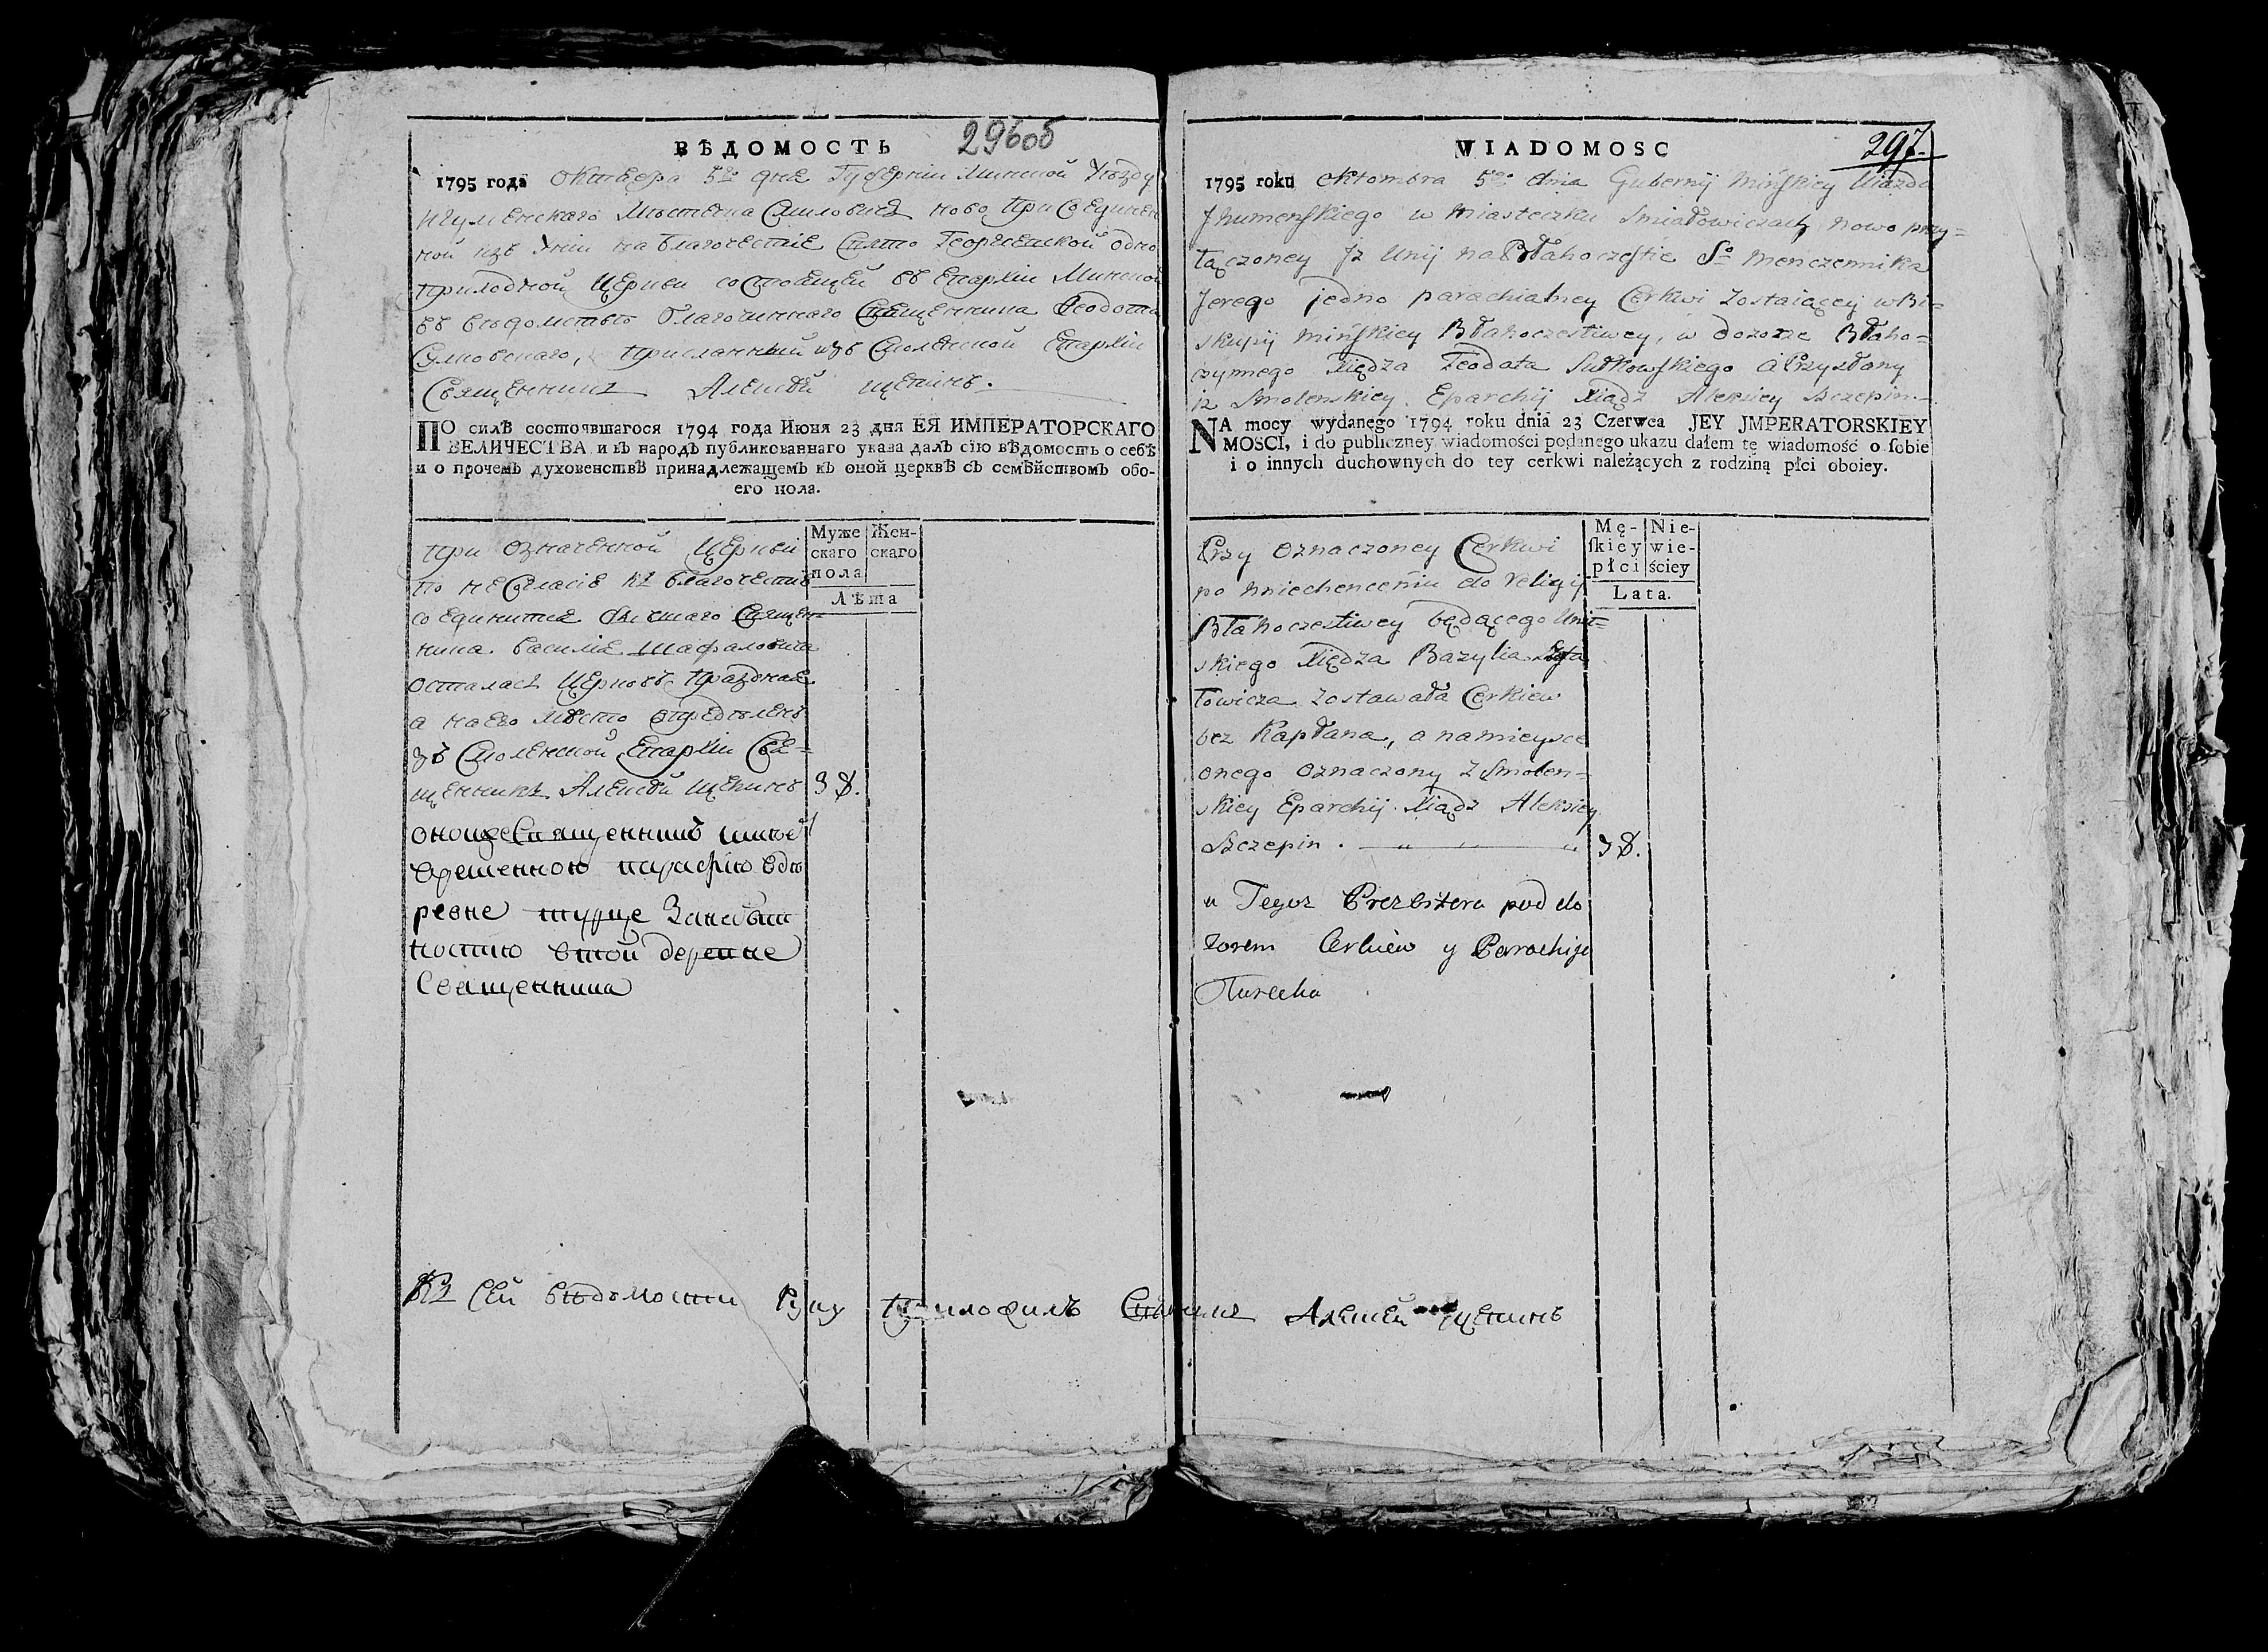 ВѢДОМОСТЬ 296об
1795 года октября 5го дня Губерніи Минской Уезду
Игуменскаго Мѣстечка Смиловичъ ново присоединен
ной изъ Уніи на благочестіе Свято Георгіевской одно
приходной Церкви состоящей въ Епархіи Минской
въ вѣдомствѣ благочиннаго Священника Феодота
Сулковскаго, присланный изъ Смоленской Епархіи
Священникъ Алексѣй Щепинъ.
ПО силѣ состоявшагося 1794 года Июня 23 дня ЕЯ ИМПЕРАТОРСКАГО
ВЕЛИЧЕСТВА и въ народъ публикованнаго указа далъ сію вѣдомость о себѣ
и о прочемъ духовенствѣ принадлежащемъ къ оной церквѣ съ семѣйствомъ обо-
его пола.
Муже скаго пола
Жен- скаго
Лѣта
при означенной Церкви
по несгласіе къ благочестію
соединится бывшаго Священ-
ника Василія Шафаловича
осталась Церковь праздная
а на его мѣсто опредѣленъ
зъ Смоленской Епархіи Свя=
щенникъ Алексѣй Щепинъ 38.
онойже Священникъ имеет
временною парафію вде
ревне турце
ностию втой деревне
Священника
Къ сей вѣдомости руку приложилъ Священникъ Алексѣй Щепинъ
WIADOMOSC 297.
1795 roku oktombra 5go dnia Gubernij Mińskiey Uiazdu
Jhumenskiego w Miasteczku Smiałowiczach nowo przy=
łączoney Jz Unij na Błahoczestie So Menczennika
Jerego jedno parachialney Cerkwi zostaiącey w Bi=
skupij Mińskiey Błahoczestiwey, w dozorze Błaho=
czynnego Xiędza Teodata Sułkowskiego a Przysłany
iz Smolenskiey Eparchij Xiądz Aleksiey Szczepin.
NA mocy wydanego 1794 roku dnia 23 Czerwca JEY JMPERATORSKIEY
MOSCI, i do publiczney wiadomości podanego ukazu dałem tę wiadomość o sobie
i o innych duchownych do tey cerkwi należących z rodziną płci oboiey.
Mę- skiey płci
Nie- wie- ściey
Lata.
Przy oznaczoney Cerkwi
po niechenceniu do religij
Błahoczestiwey będącego Unit=
skiego Xiędza Bazylia Szafa
łowicza zostawała Cerkiew
bez Kapłana, a na mieysce
onego oznaczony z Smolen=
skiey Eparchij Xiądz Aleksiey
Szczepin. 38.
u Tegoz Prezbitera pod do
zorem Cerkiew y Parochija
Turecka